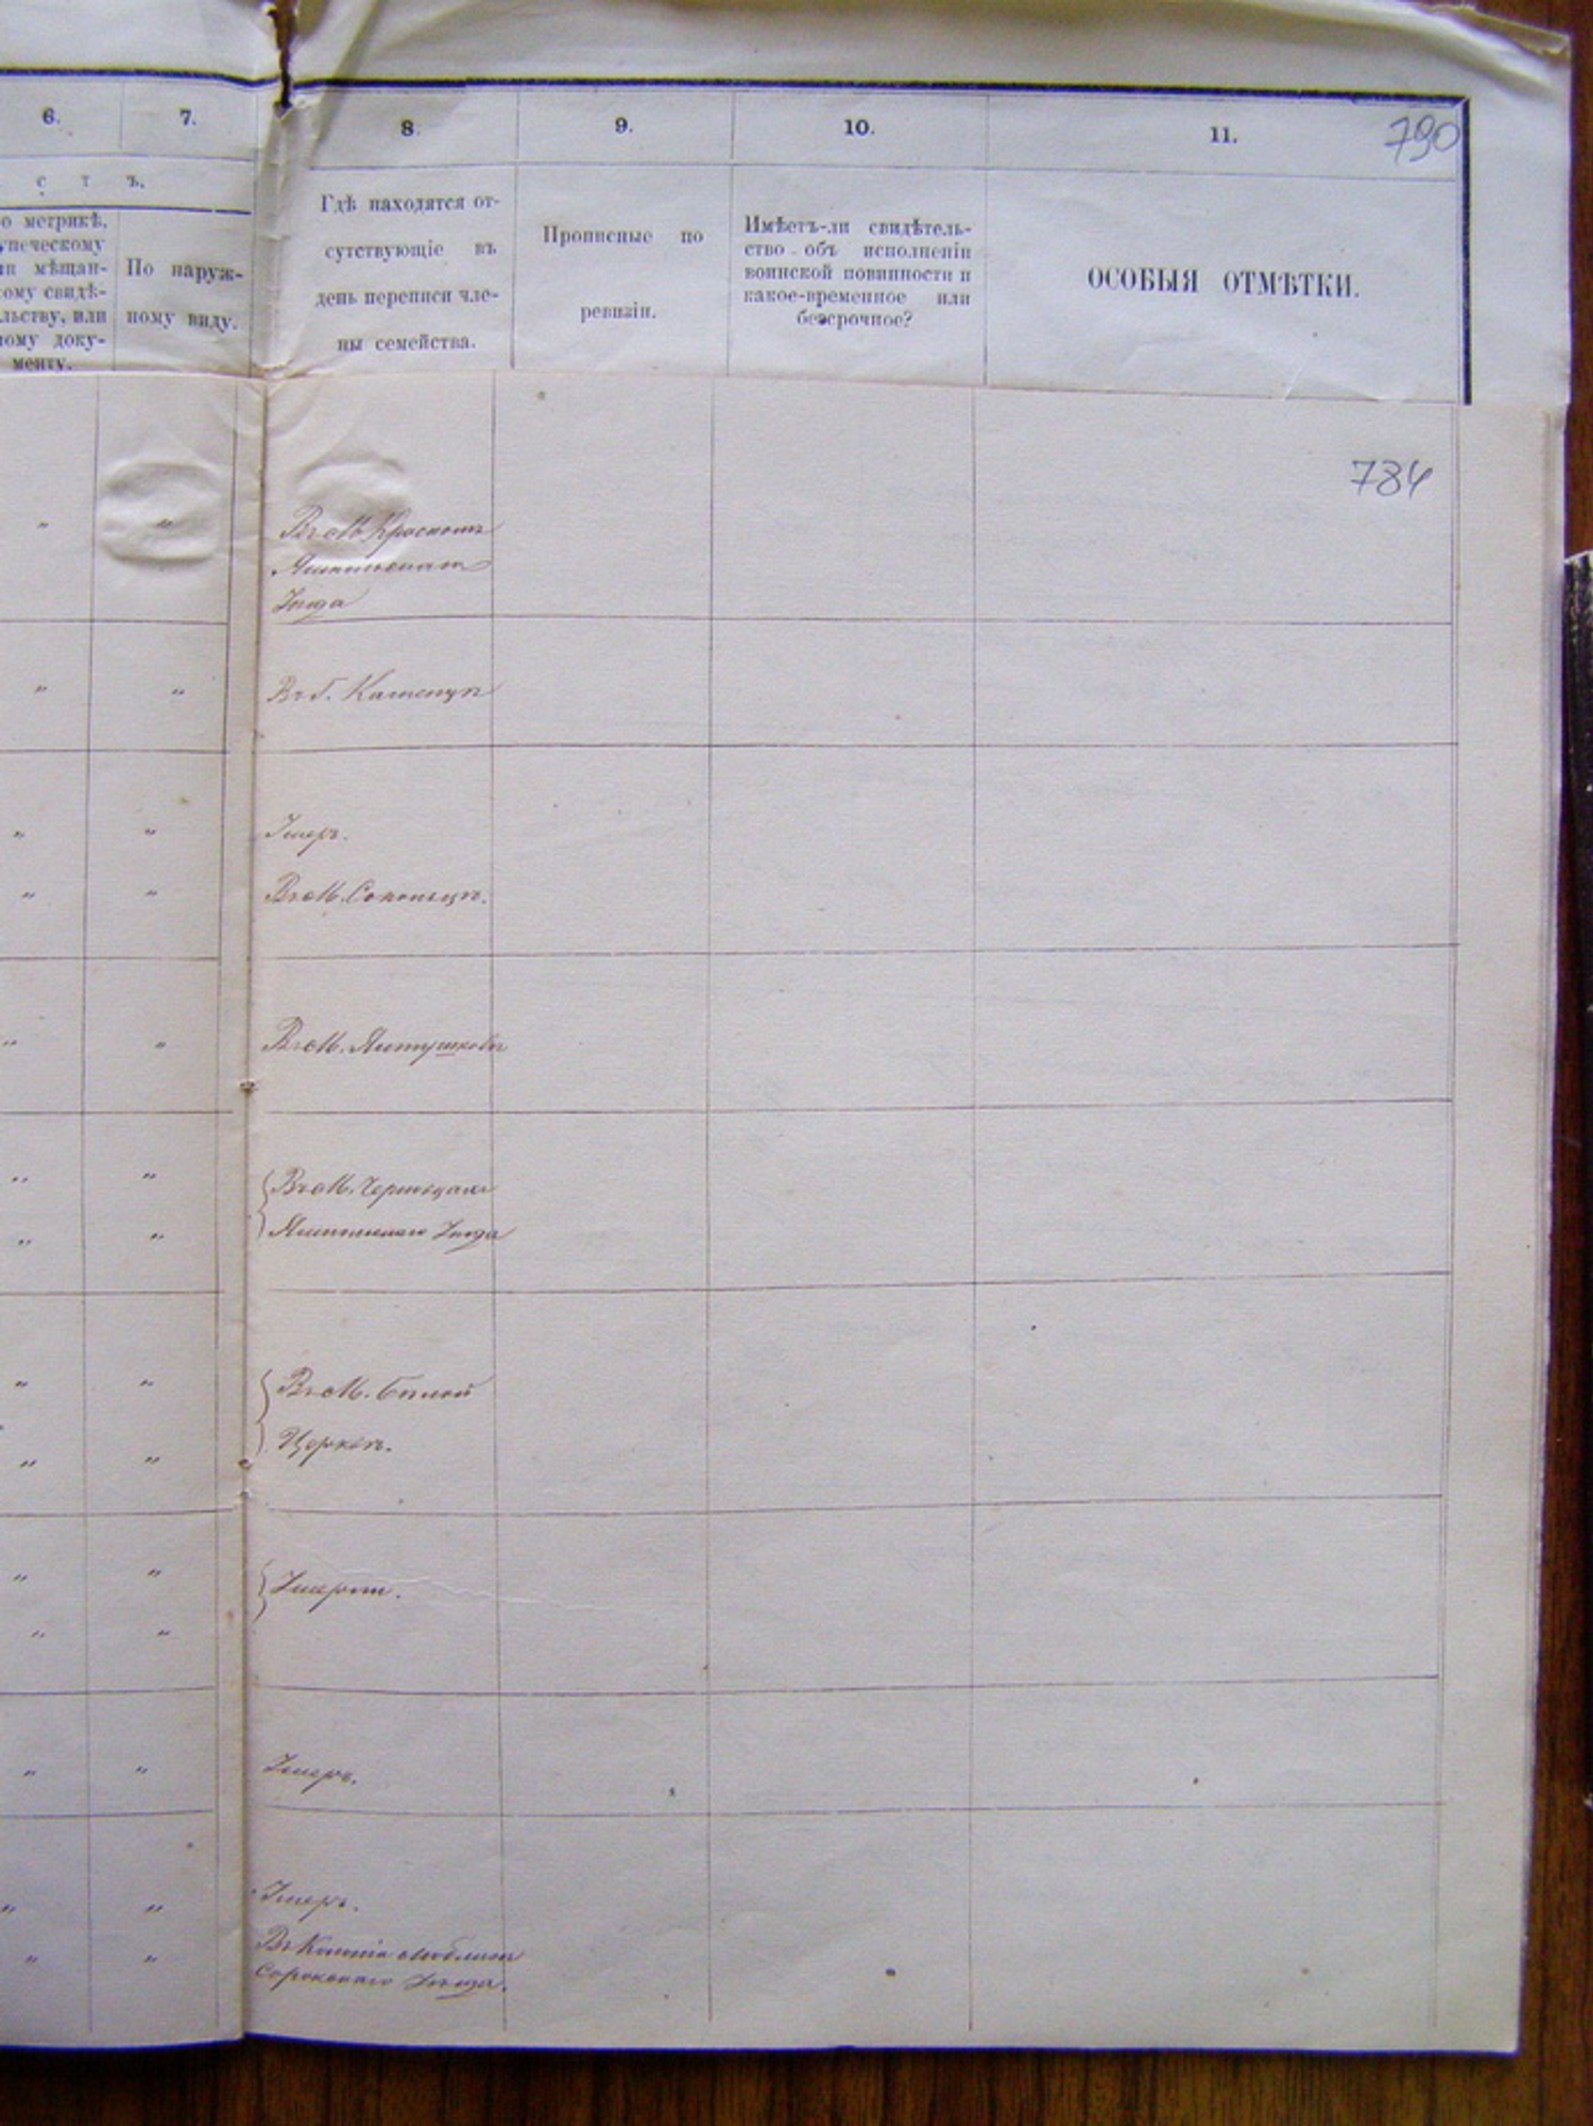 6.
7.
8.
9.
10.
11.
790
с т ъ.
о метрикѣ,
упеческому
ли мѣщан-
кому свидѣ-
льству, или
ному доку-
менту.
По наруж-
ному виду.
Гдѣ находятся от-
сутствующіе въ
день переписи чле-
ны семейства.
Прописные по
ревизіи.
Имѣетъ-ли свидѣтель-
ство объ исполненіи
воинской повинности и
какое-временное или
безсрочное?
ОСОБЫЯ ОТМѢТКИ.
784
" " Въ М. Красномъ
Ямпольскаго
Уѣзда
" " Въ г. Каменцѣ
" " Умеръ.
" " Въ М. Сокольцѣ.
" " Въ М. Ялтушковѣ
" " Въ М. Черневцахъ
" " Ямпольскаго Уѣзда
" " Въ М. Бѣлой
" " Церкви.
" " Умерли.
" "
" " Умеръ.
" " Умеръ.
" " Въ
Сорокскаго Уѣзда.